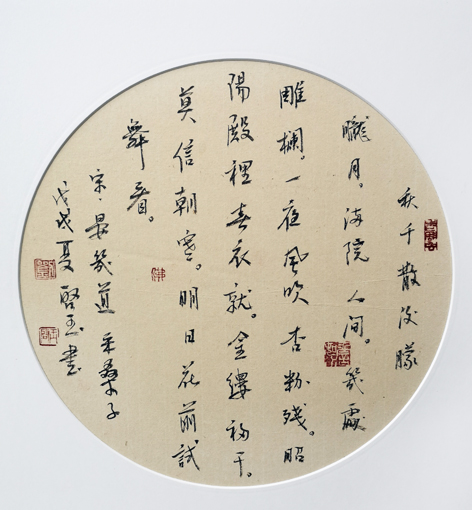 秋千散後朦
朧月。滿院人間。幾處
雕欄。一夜風吹杏粉殘。昭
陽殿裡春衣就。金縷初干。
莫信朝寒。明日花前試
舞看。
宋·晏幾道 采桑子
戊戌夏 啓玉書